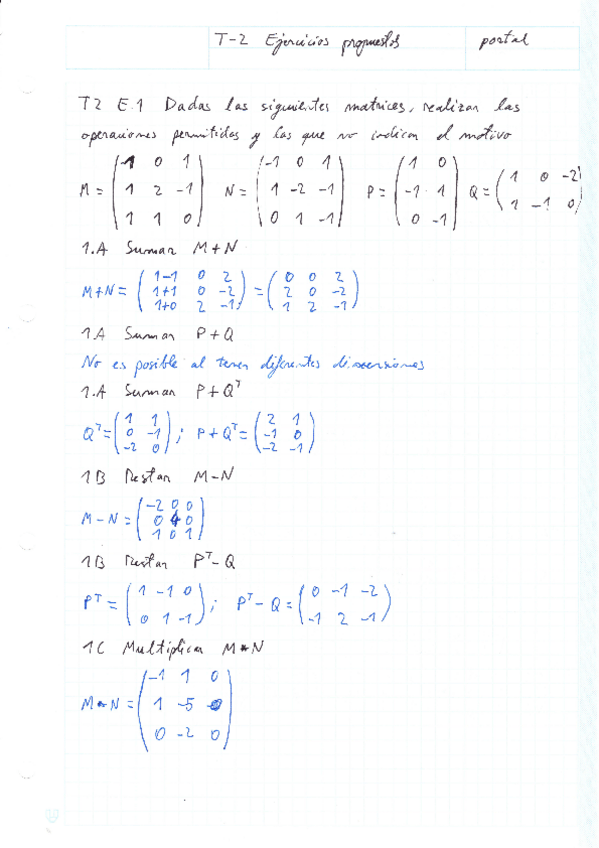 T-2 Ejercicios propuestos portal
T2 E.1 Dadas las siguientes matrices, realizar las
operaciones permitidas y las que no indicar el motivo
M = ( 1 0 1 ; 1 2 -1 ; 1 1 0 ) N = ( -1 0 1 ; 1 -2 -1 ; 0 1 -1 ) P = ( 1 0 ; -1 1 ; 0 -1 ) Q = ( 1 0 -2 ; 1 -1 0 )
1.A Sumar M+N
M+N = ( 1-1 0 2 ; 1+1 0 -2 ; 1+0 2 -1 ) = ( 0 0 2 ; 2 0 -2 ; 1 2 -1 )
1.A Sumar P+Q
No es posible al tener diferentes dimensiones
1.A Sumar P+Qᵀ
Qᵀ = ( 1 1 ; 0 -1 ; -2 0 ) ; P+Qᵀ = ( 2 1 ; -1 0 ; -2 -1 )
1B Restar M-N
M-N = ( -2 0 0 ; 0 4 0 ; 1 0 1 )
1B Restar Pᵀ-Q
Pᵀ = ( 1 -1 0 ; 0 1 -1 ) ; Pᵀ-Q = ( 0 -1 -2 ; -1 2 -1 )
1C Multiplicar M*N
M*N = ( -1 1 0 ; 1 -5 ; 0 -2 0 )